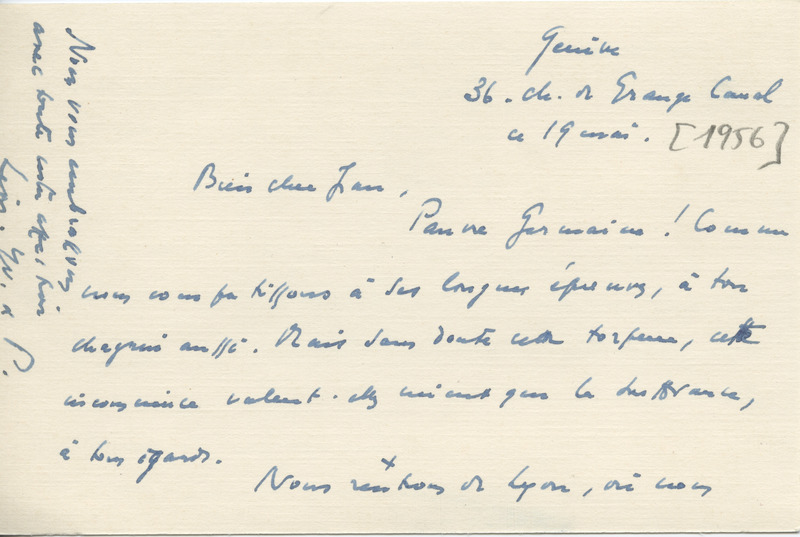 Genève
36. ch. de Grange Canal
ce 19 mai. [1956]
Bien cher Jean,
Pauvre Germaine ! Comme
nous compatissons à ses longues épreuves, à ton
chagrin aussi. Mais sans doute cette torpeur, cette
inconscience valent-elles mieux que la souffrance,
à tous égards.
Nous rentrons de Lyon, où nous
Nous vous embrassons
avec toute notre affection
P.